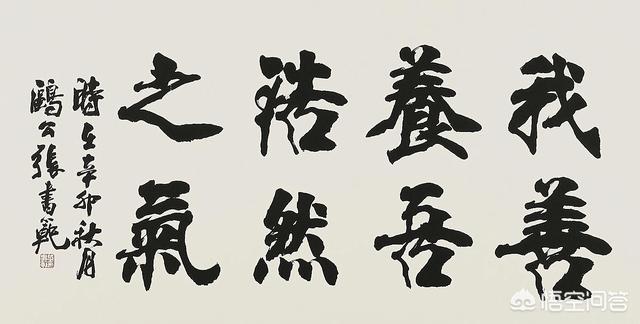 我善
養吾
浩然
之氣
時在辛卯秋月
鷗公張書範
悟空问答